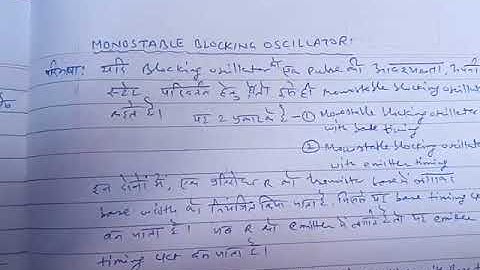 MONOSTABLE BLOCKING OSCILLATOR:
परिभाषा: यदि Blocking oscillator को एक pulse की आवश्यकता, अपनी
स्टेट परिवर्तन हेतु होती इसे ही monostable blocking oscillator
कहते हैं। यह 2 प्रकार के है - ① Monostable blocking oscillator
with base timing
② Monostable blocking oscillator
with emitter timing
इन दोनों में, एक प्रतिरोध R को base में लगाकर
base width को नियंत्रित किया जाता है, जिससे यह base timing ckt
बन जाता है। जब R को emitter में लगाते है तो यह emitter
timing ckt बन जाता है।